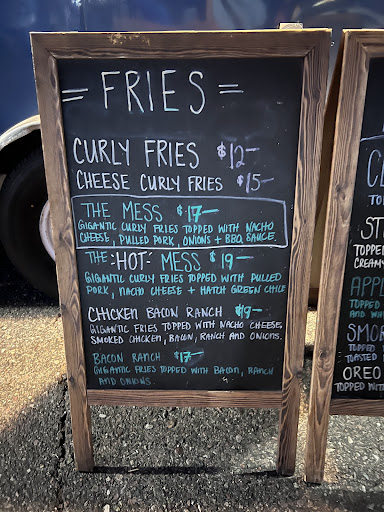 = FRIES =
CURLY FRIES $12-
CHEESE CURLY FRIES $15-
THE MESS $17-
GIGANTIC CURLY FRIES TOPPED WITH NACHO
CHEESE, PULLED PORK, ONIONS + BBQ SAUCE.
THE "HOT" MESS $19-
GIGANTIC CURLY FRIES TOPPED WITH PULLED
PORK, NACHO CHEESE + HATCH GREEN CHILE
CHICKEN BACON RANCH $19-
GIGANTIC FRIES TOPPED WITH NACHO CHEESE,
SMOKED CHICKEN, BACON, RANCH AND ONIONS.
BACON RANCH $17-
GIGANTIC FRIES TOPPED WITH BACON, RANCH
AND ONIONS.
TOPPED
CREAMY
TOPPED
SMOR
TOPPED
TOASTED
OREO
TOPPED WITH